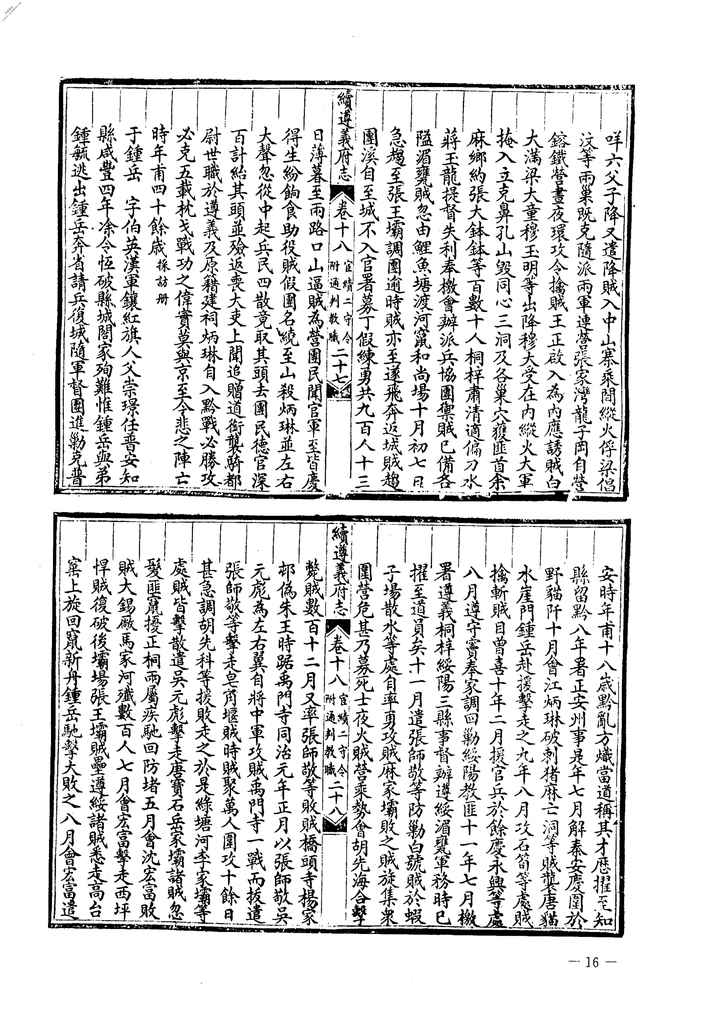 咩六父子降又遣降賊入中山寨乘間縱火俘梁倡
汶等兩巢既克隨派兩軍連營張家灣龍子岡自營
鎔鐵營晝夜環攻令擒賊王正啟入為內應誘賊白
大滿梁大童穆玉明等出降穆大受在內縱火大軍
掩入立克鼻孔山毀同心三洞及各巢穴獲匪首余
麻鄉約張大鉢鉢等百數十人桐梓肅清適偏刀水
蔣玉龍提督失利奉檄會辦派兵協團禦賊已備各
隘湄甕賊忽由鯉魚塘渡河竄和尚場十月初七日
急趨至張王壩調團逾時賊亦至遂飛奔返城賊趨
團溪自至城不入官署募丁假練勇共九百人十三
續遵義府志 卷十八 宦績二守令附通判教職 二十七
日薄暮至兩路口山逼賊為營團民聞官軍至皆慶
得生紛餉食助役賊假團名繞至山殺炳琳並左右
大聲忽從中起兵民四散竟取其頭去團民德官深
百計紿其頭並殮返喪大吏上聞追贈道銜襲騎都
尉世職於遵義及原籍建祠炳琳自入黔戰必勝攻
必克五載枕戈戰功之偉實莫與京至今悲之陣亡
時年甫四十餘歲採訪冊
于鍾岳 字伯英漢軍鑲紅旗人父崇璟任普安知
縣咸豐四年涂令恆破縣城闔家殉難惟鍾岳與弟
鍾毓逃出鍾岳奔省請兵復城隨軍督團進勦克普
安時年甫十八歲黔亂方熾當道稱其才歷擢至知
縣留黔八年署正安州事是年七月解秦安慶圍於
野貓阡十月會江炳琳破刺猪麻亡洞等賊襲唐貓
水崖門鍾岳赴援擊走之九年八月攻石筍等處賊
擒斬賊目曾喜十年二月援官兵於餘慶永興等處
八月遵守竇奉家調回勦綏陽教匪十一年七月檄
署遵義桐梓綏陽三縣事督辦遵綏湄甕軍務時已
擢至道員矣十一月遣張師敬等防勦白號賊於蝦
子場散水等處自率勇攻賊麻家壩敗之賊旋集眾
圍營危甚乃募死士夜火賊營乘勢會胡先海合擊
續遵義府志 卷十八 宦績二守令附通判教職 二十八
斃賊數百十二月又率張師敬等敗賊橋頭寺楊家
邨偽朱王時踞禹門寺同治元年正月以張師敬吳
元彪為左右翼自將中軍攻賊禹門寺一戰而拔遣
張師敬等擊走皂角堰賊時賊聚萬人圍攻十餘日
甚急調胡先科等援敗走之於是綠塘河李家壩等
處賊皆擊散遣吳元彪擊走唐寶石岳家壩諸賊忽
髮匪竄擾正桐兩屬疾馳回防堵五月會沈宏富敗
賊大錫廠馬家河殲數百人七月會宏富擊走西坪
悍賊復破後壩場張王壩賊壘遵綏諸賊悉走高台
窯上旋回竄新舟鍾岳馳擊大敗之八月會宏富遣
— 16 —